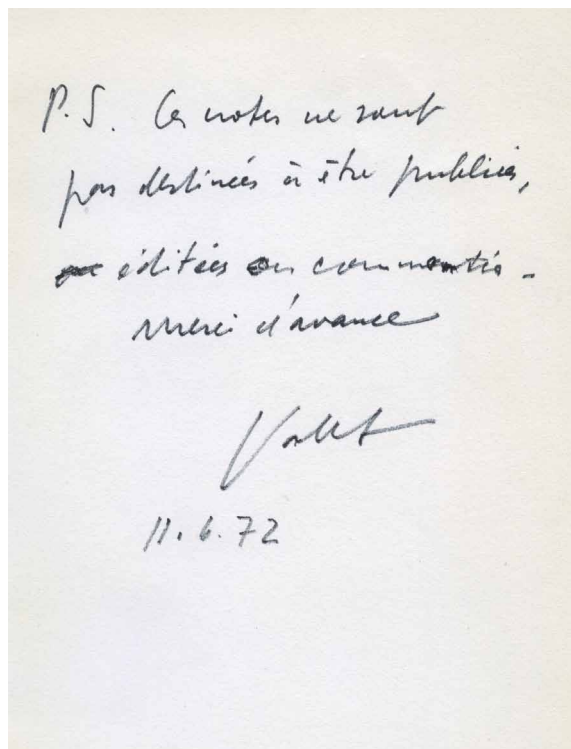 P.S. Ces notes ne sont
pas destinées à être publiées,
éditées ou commentées -
merci d'avance
11.6.72